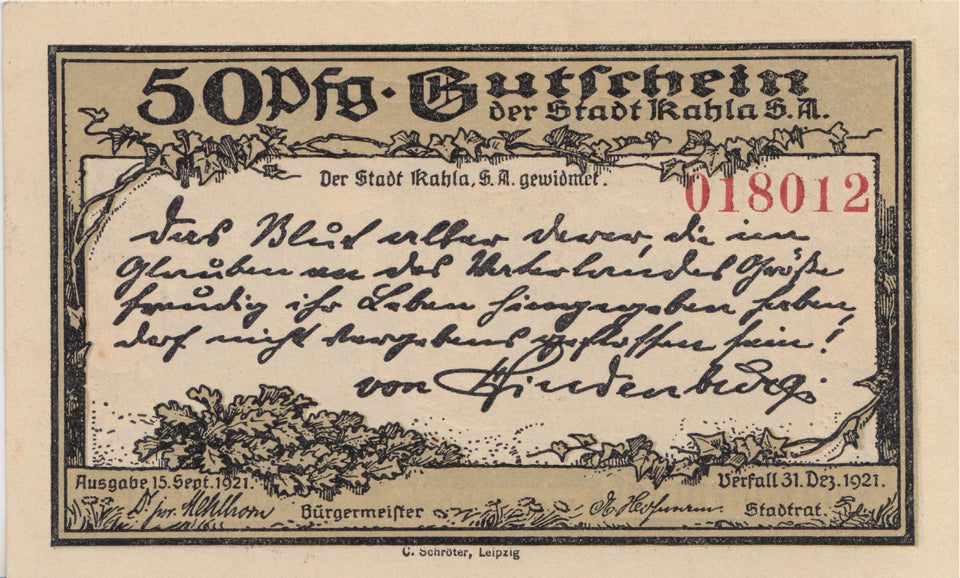 50 Pfg. Gutschein
der Stadt Kahla S.A.
Der Stadt Kahla, S.A. gewidmet.
018012
Das Blut aller derer, die im
Glauben an des Vaterlandes Größe
freudig ihr Leben hingegeben haben,
darf nicht vergebens geflossen sein!
von Hindenburg.
Ausgabe 15. Sept. 1921.
Verfall 31. Dez. 1921.
Dr. jur.
Bürgermeister
Stadtrat.
C. Schröter, Leipzig